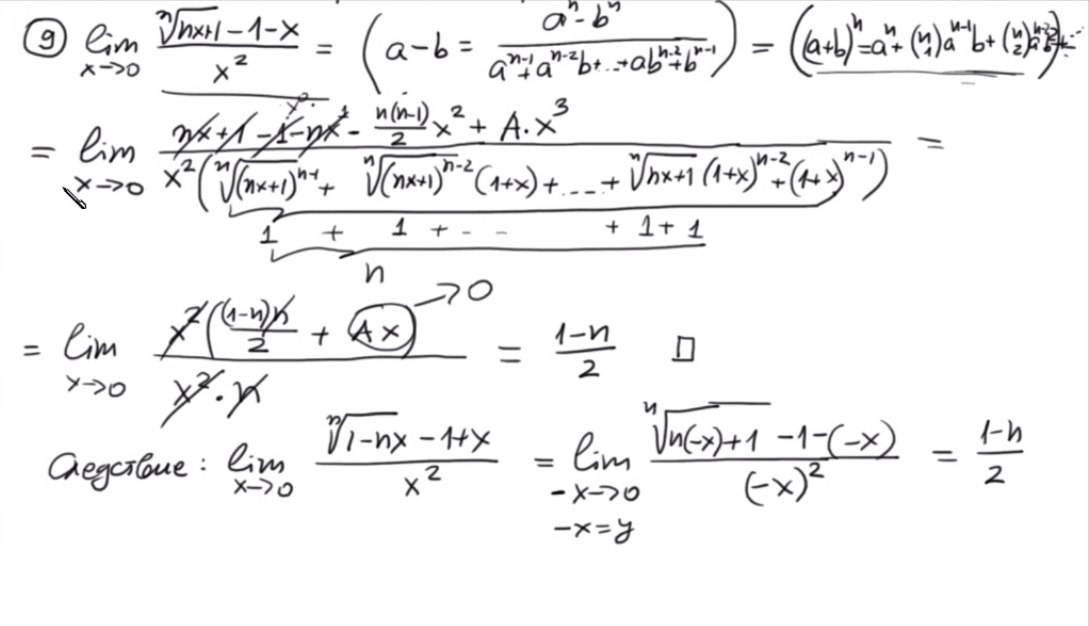 ⑨ lim_{x→0} (ⁿ√(nx+1) - 1 - x)/x² = (a - b = (aⁿ - bⁿ)/(aⁿ⁻¹ + aⁿ⁻²b + ... + abⁿ⁻² + bⁿ⁻¹)) = ((a+b)ⁿ = aⁿ + (n 1)aⁿ⁻¹b + (n 2)aⁿ⁻²b² + ...)
= lim_{x→0} (nx + 1 - 1 - nx - n(n-1)/2 x² + A·x³)/(x²(ⁿ√(nx+1)ⁿ⁻¹ + ⁿ√(nx+1)ⁿ⁻² (1+x) + ... + ⁿ√(nx+1) (1+x)ⁿ⁻² + (1+x)ⁿ⁻¹)) =
1 + 1 + - - + 1 + 1
n
= lim_{x→0} (x²((1-n)n/2 + Ax))/(x²·n) = (1-n)/2 □
→0
Следствие: lim_{x→0} (ⁿ√(1-nx) - 1 + x)/x² = lim_{-x→0} (ⁿ√(n(-x)+1) - 1 - (-x))/(-x)² = (1-n)/2
-x = y